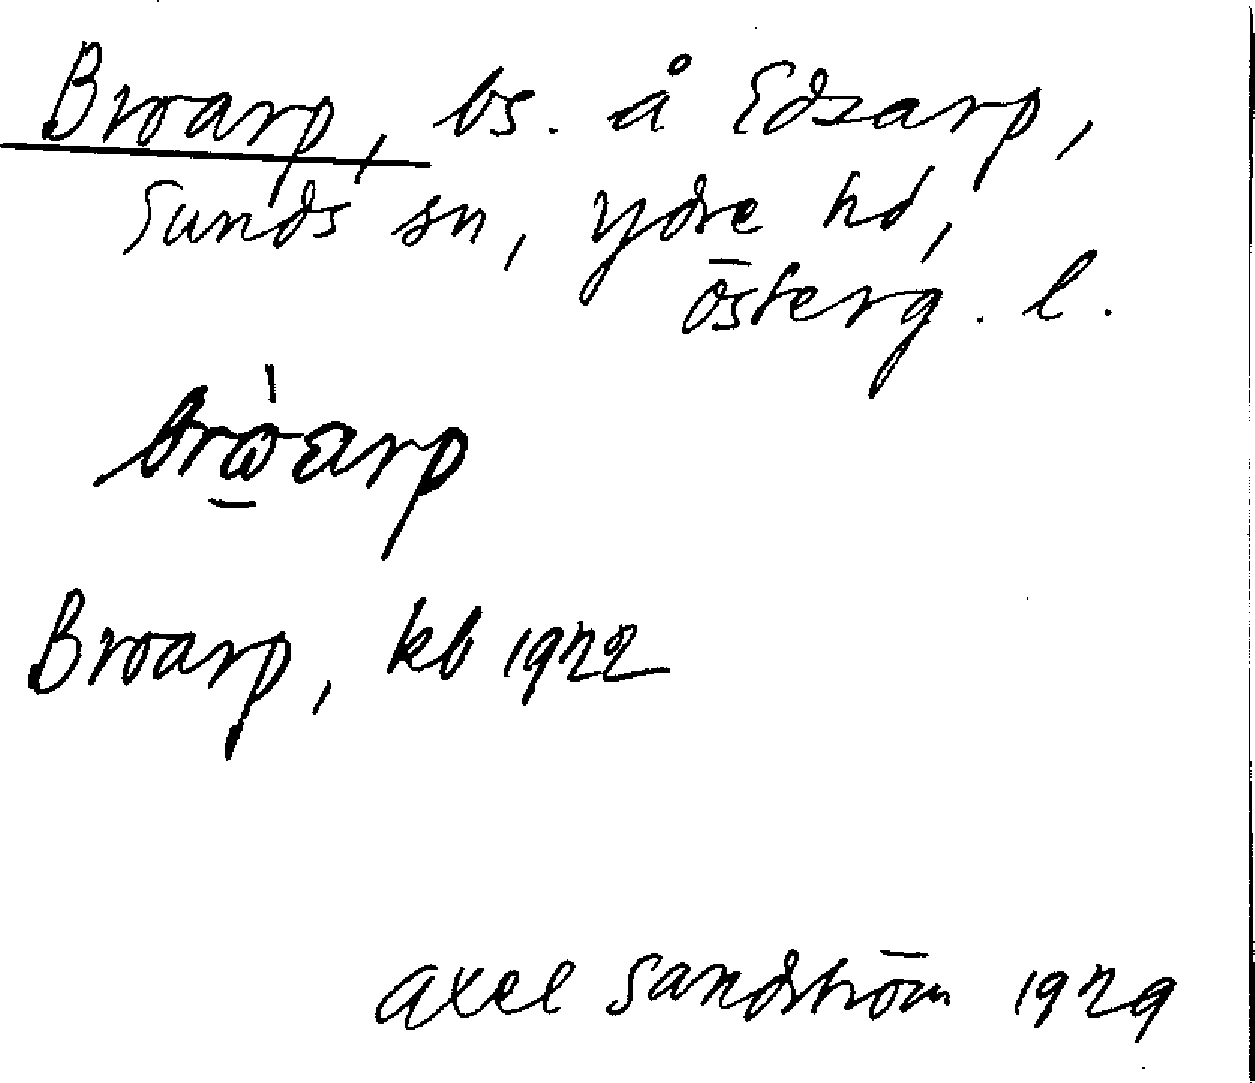 Broarp, bs. å Edsarp,
Sunds sn, Ydre hd,
Österg. l.
Broarp, kb 1922
Axel Sandström 1929